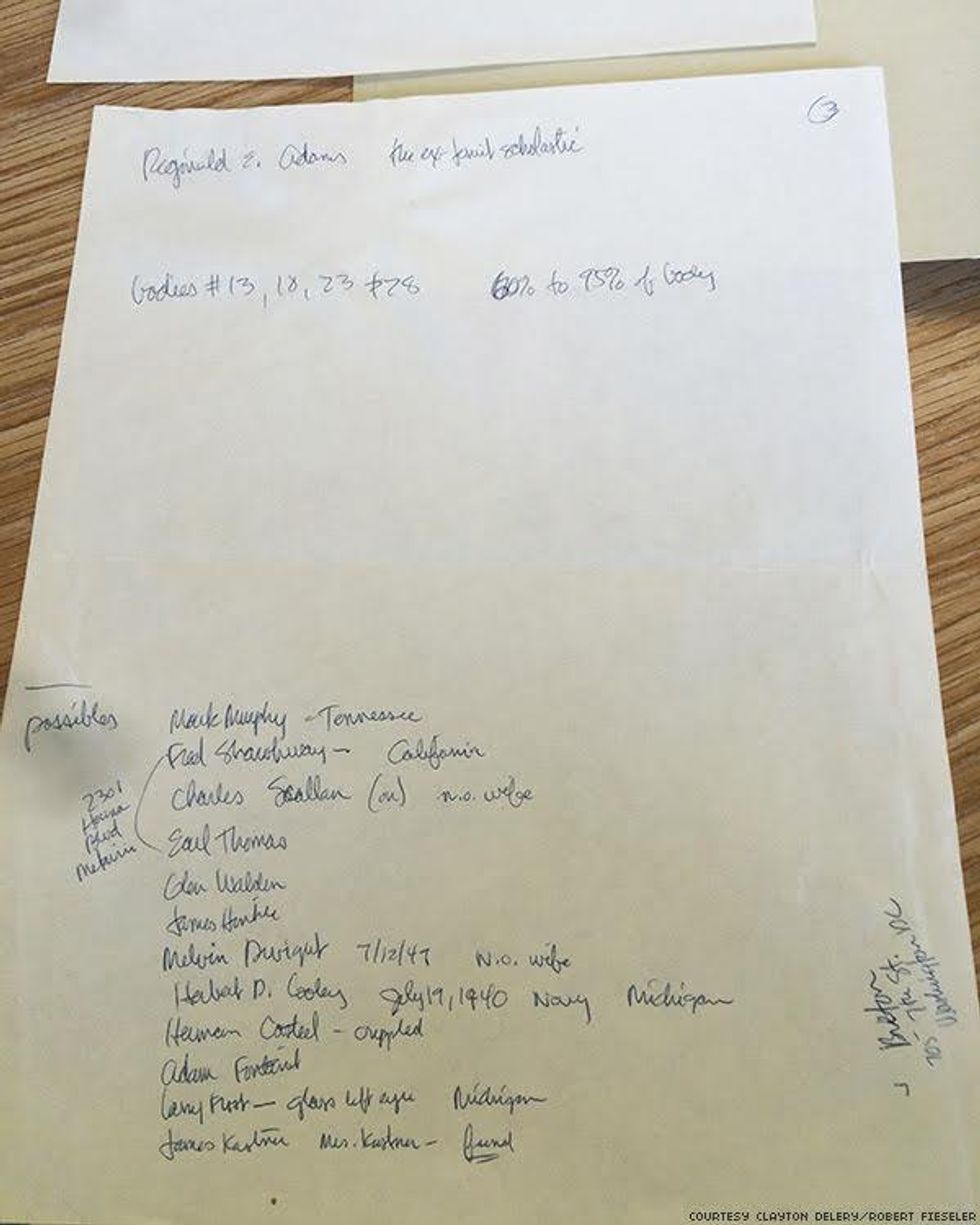 3
Reginald E. Adams the ex-Jesuit scholastic
bodies #13, 18, 23 & 28 60% to 95% of body
possibles
Mark Murphy - Tennessee
Fred - California
Charles Scallan (on) n.o. wife
Earl Thomas
2301
Houma
Blvd
Metairie
Glen Walden
James
Melvin Dwight 7/12/47 N.o. wife
Herbert D. Cooley July 19, 1940 Navy Michigan
Herman Casteel - crippled
Adam Fontenot
Larry Frost - glass left eye Michigan
James Kastner Mrs. Kastner - found
St.
Washington DC
COURTESY CLAYTON DELERY/ROBERT FIESELER